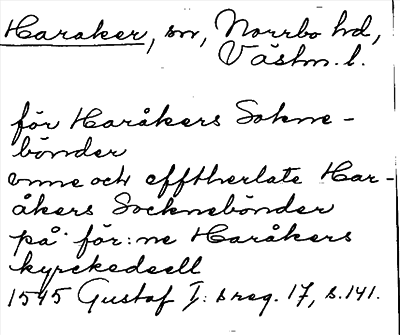 Haraker, sn, Norrbo hd,
Västm. l.
för Haråkers Sokne-
bönder
vnne och efftherlate Har-
åkers Socknebönder
på för:ne Haråkers
kyrckedeell
1545 Gustaf I: s reg. 17, s. 141.